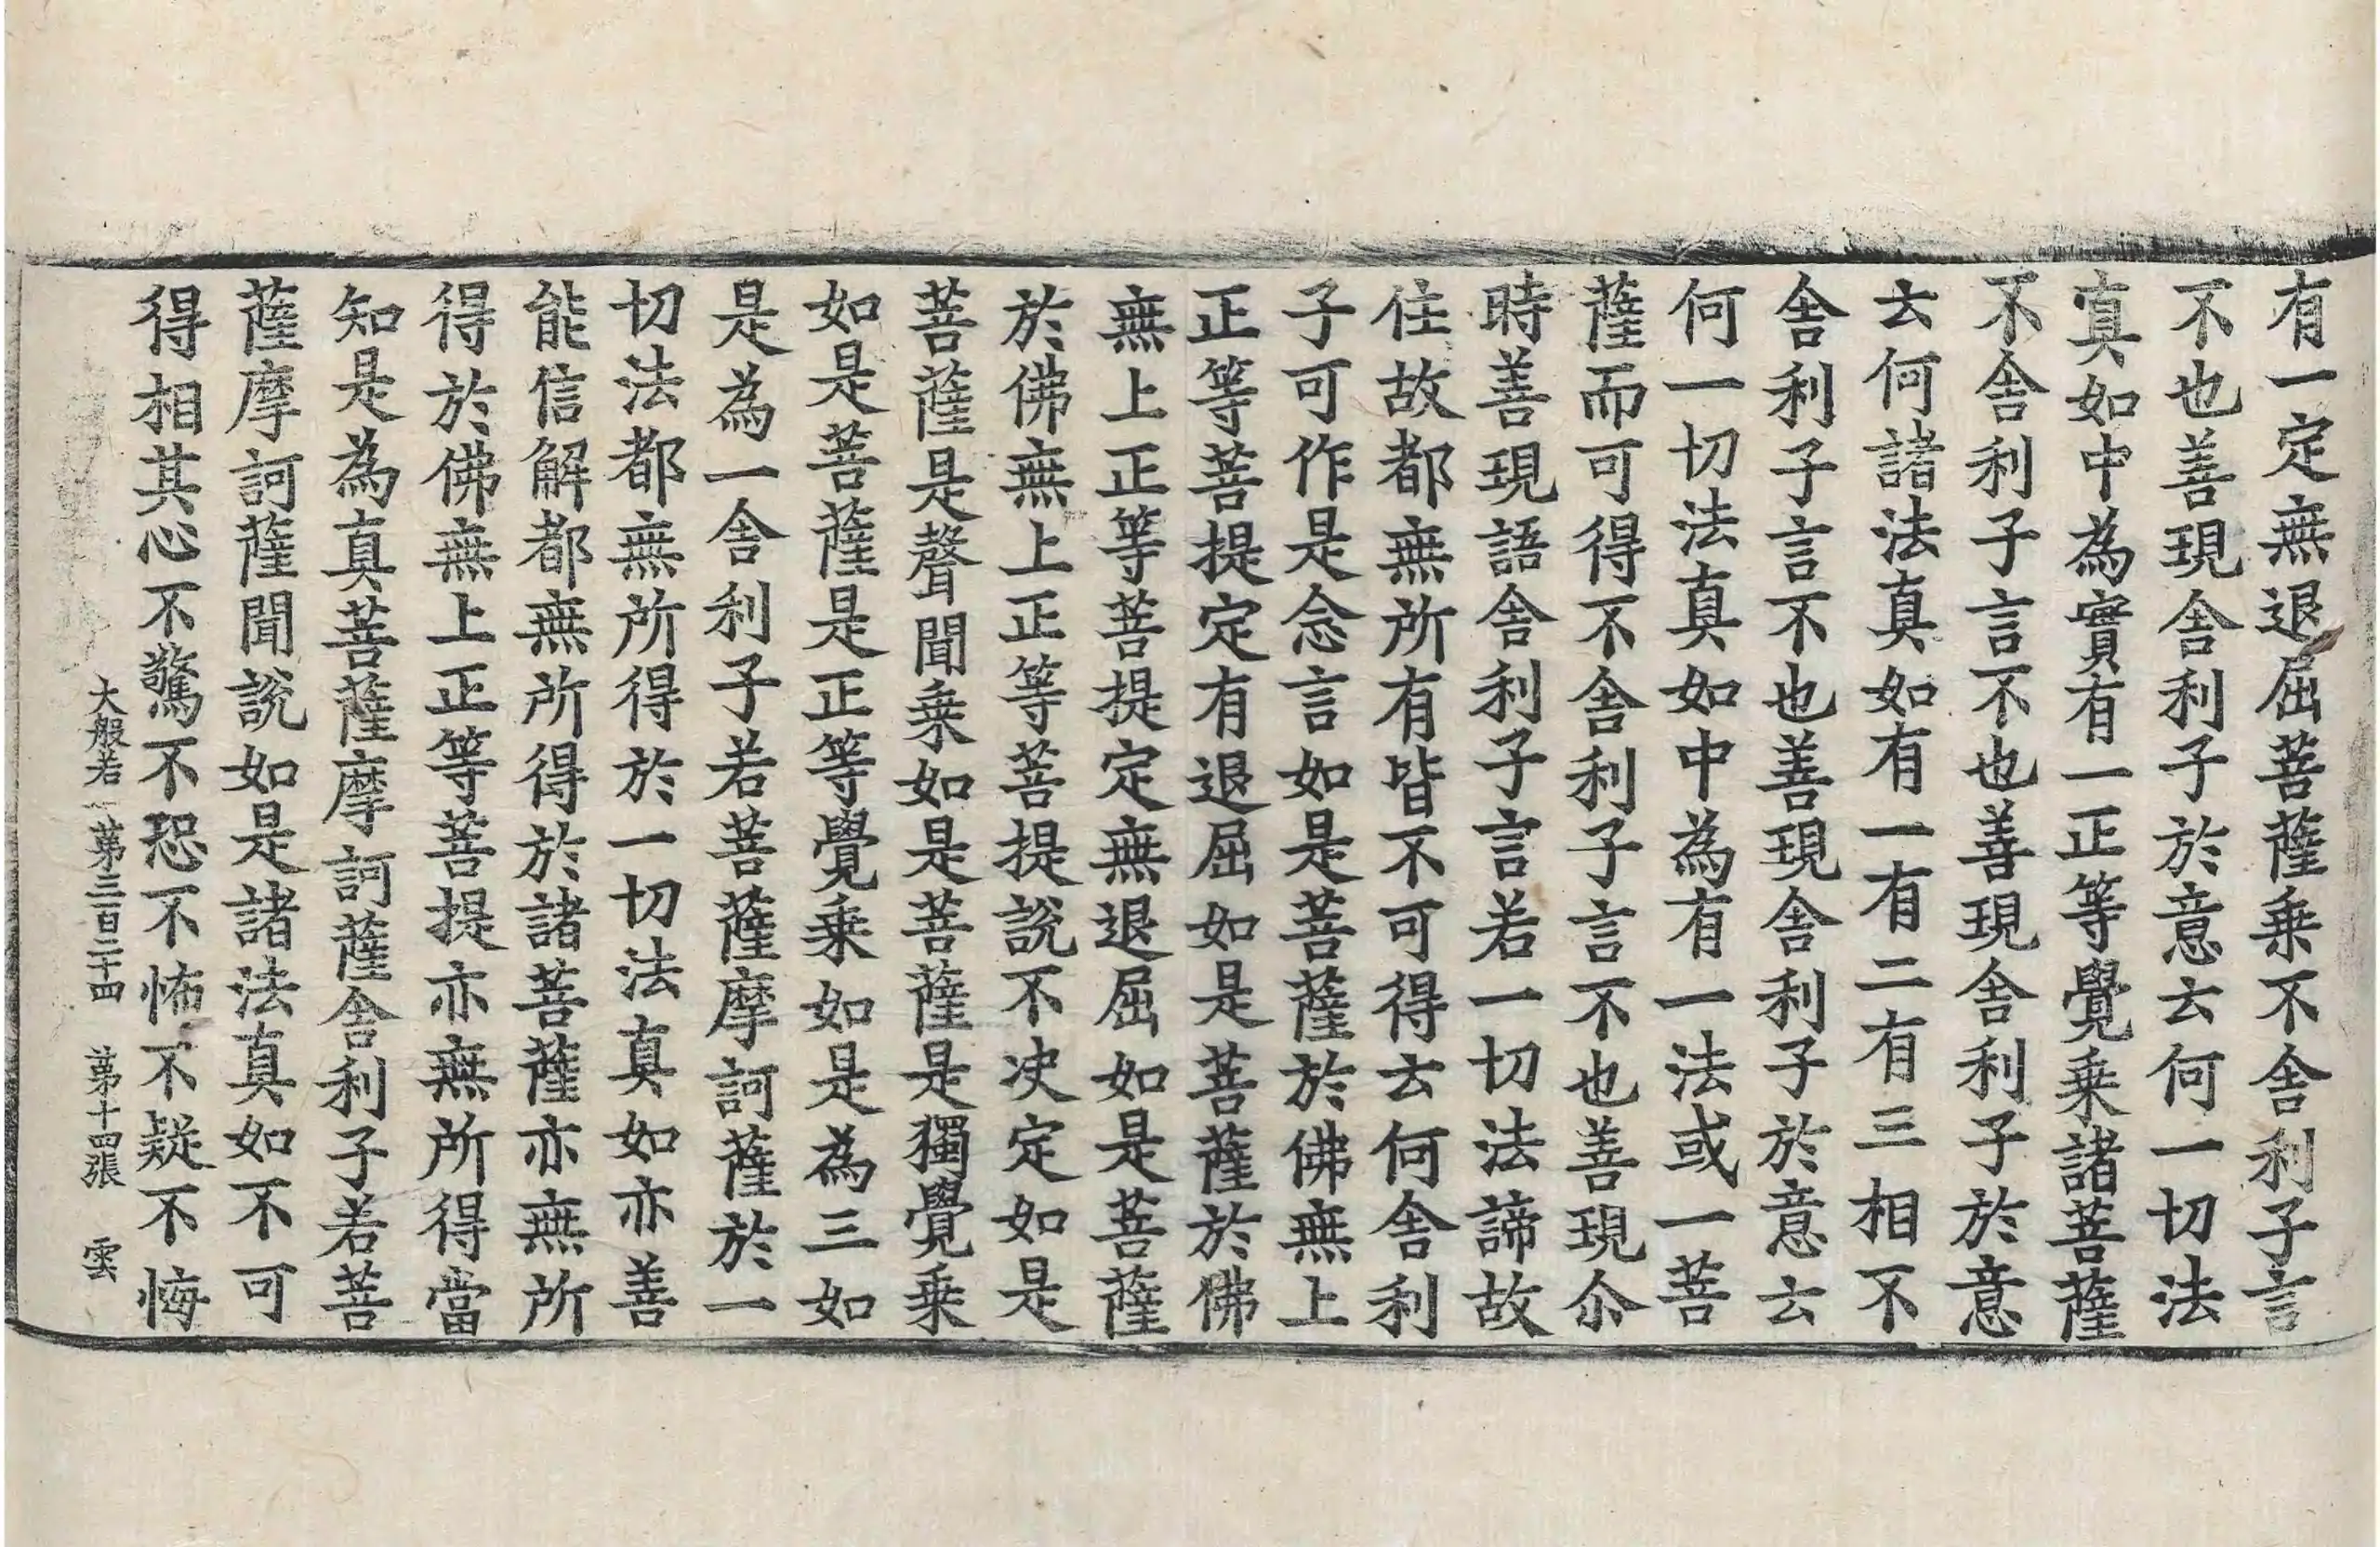 有一定無退屈菩薩乗不舍利子言
不也善現舍利子於意云何一切法
真如中為實有一正等覺乗諸菩薩
不舍利子言不也善現舍利子於意
云何諸法真如有一有二有三相不
舍利子言不也善現舍利子於意云
何一切法真如中為有一法或一菩
薩而可得不舍利子言不也善現尒
時善現語舍利子言若一切法諦故
住故都無所有皆不可得云何舍利
子可作是念言如是菩薩於佛無上
正等菩提定有退屈如是菩薩於佛
無上正等菩提定無退屈如是菩薩
於佛無上正等菩提說不决定如是
菩薩是聲聞乗如是菩薩是獨覺乗
如是菩薩是正等覺乗如是為三如
是為一舍利子若菩薩摩訶薩於一
切法都無所得於一切法真如亦善
能信解都無所得於諸菩薩亦無所
得於佛無上正等菩提亦無所得當
知是為真菩薩摩訶薩舍利子若菩
薩摩訶薩聞說如是諸法真如不可
得相其心不驚不恐不怖不疑不悔
大般若 第三百二十四 第十四張 雲